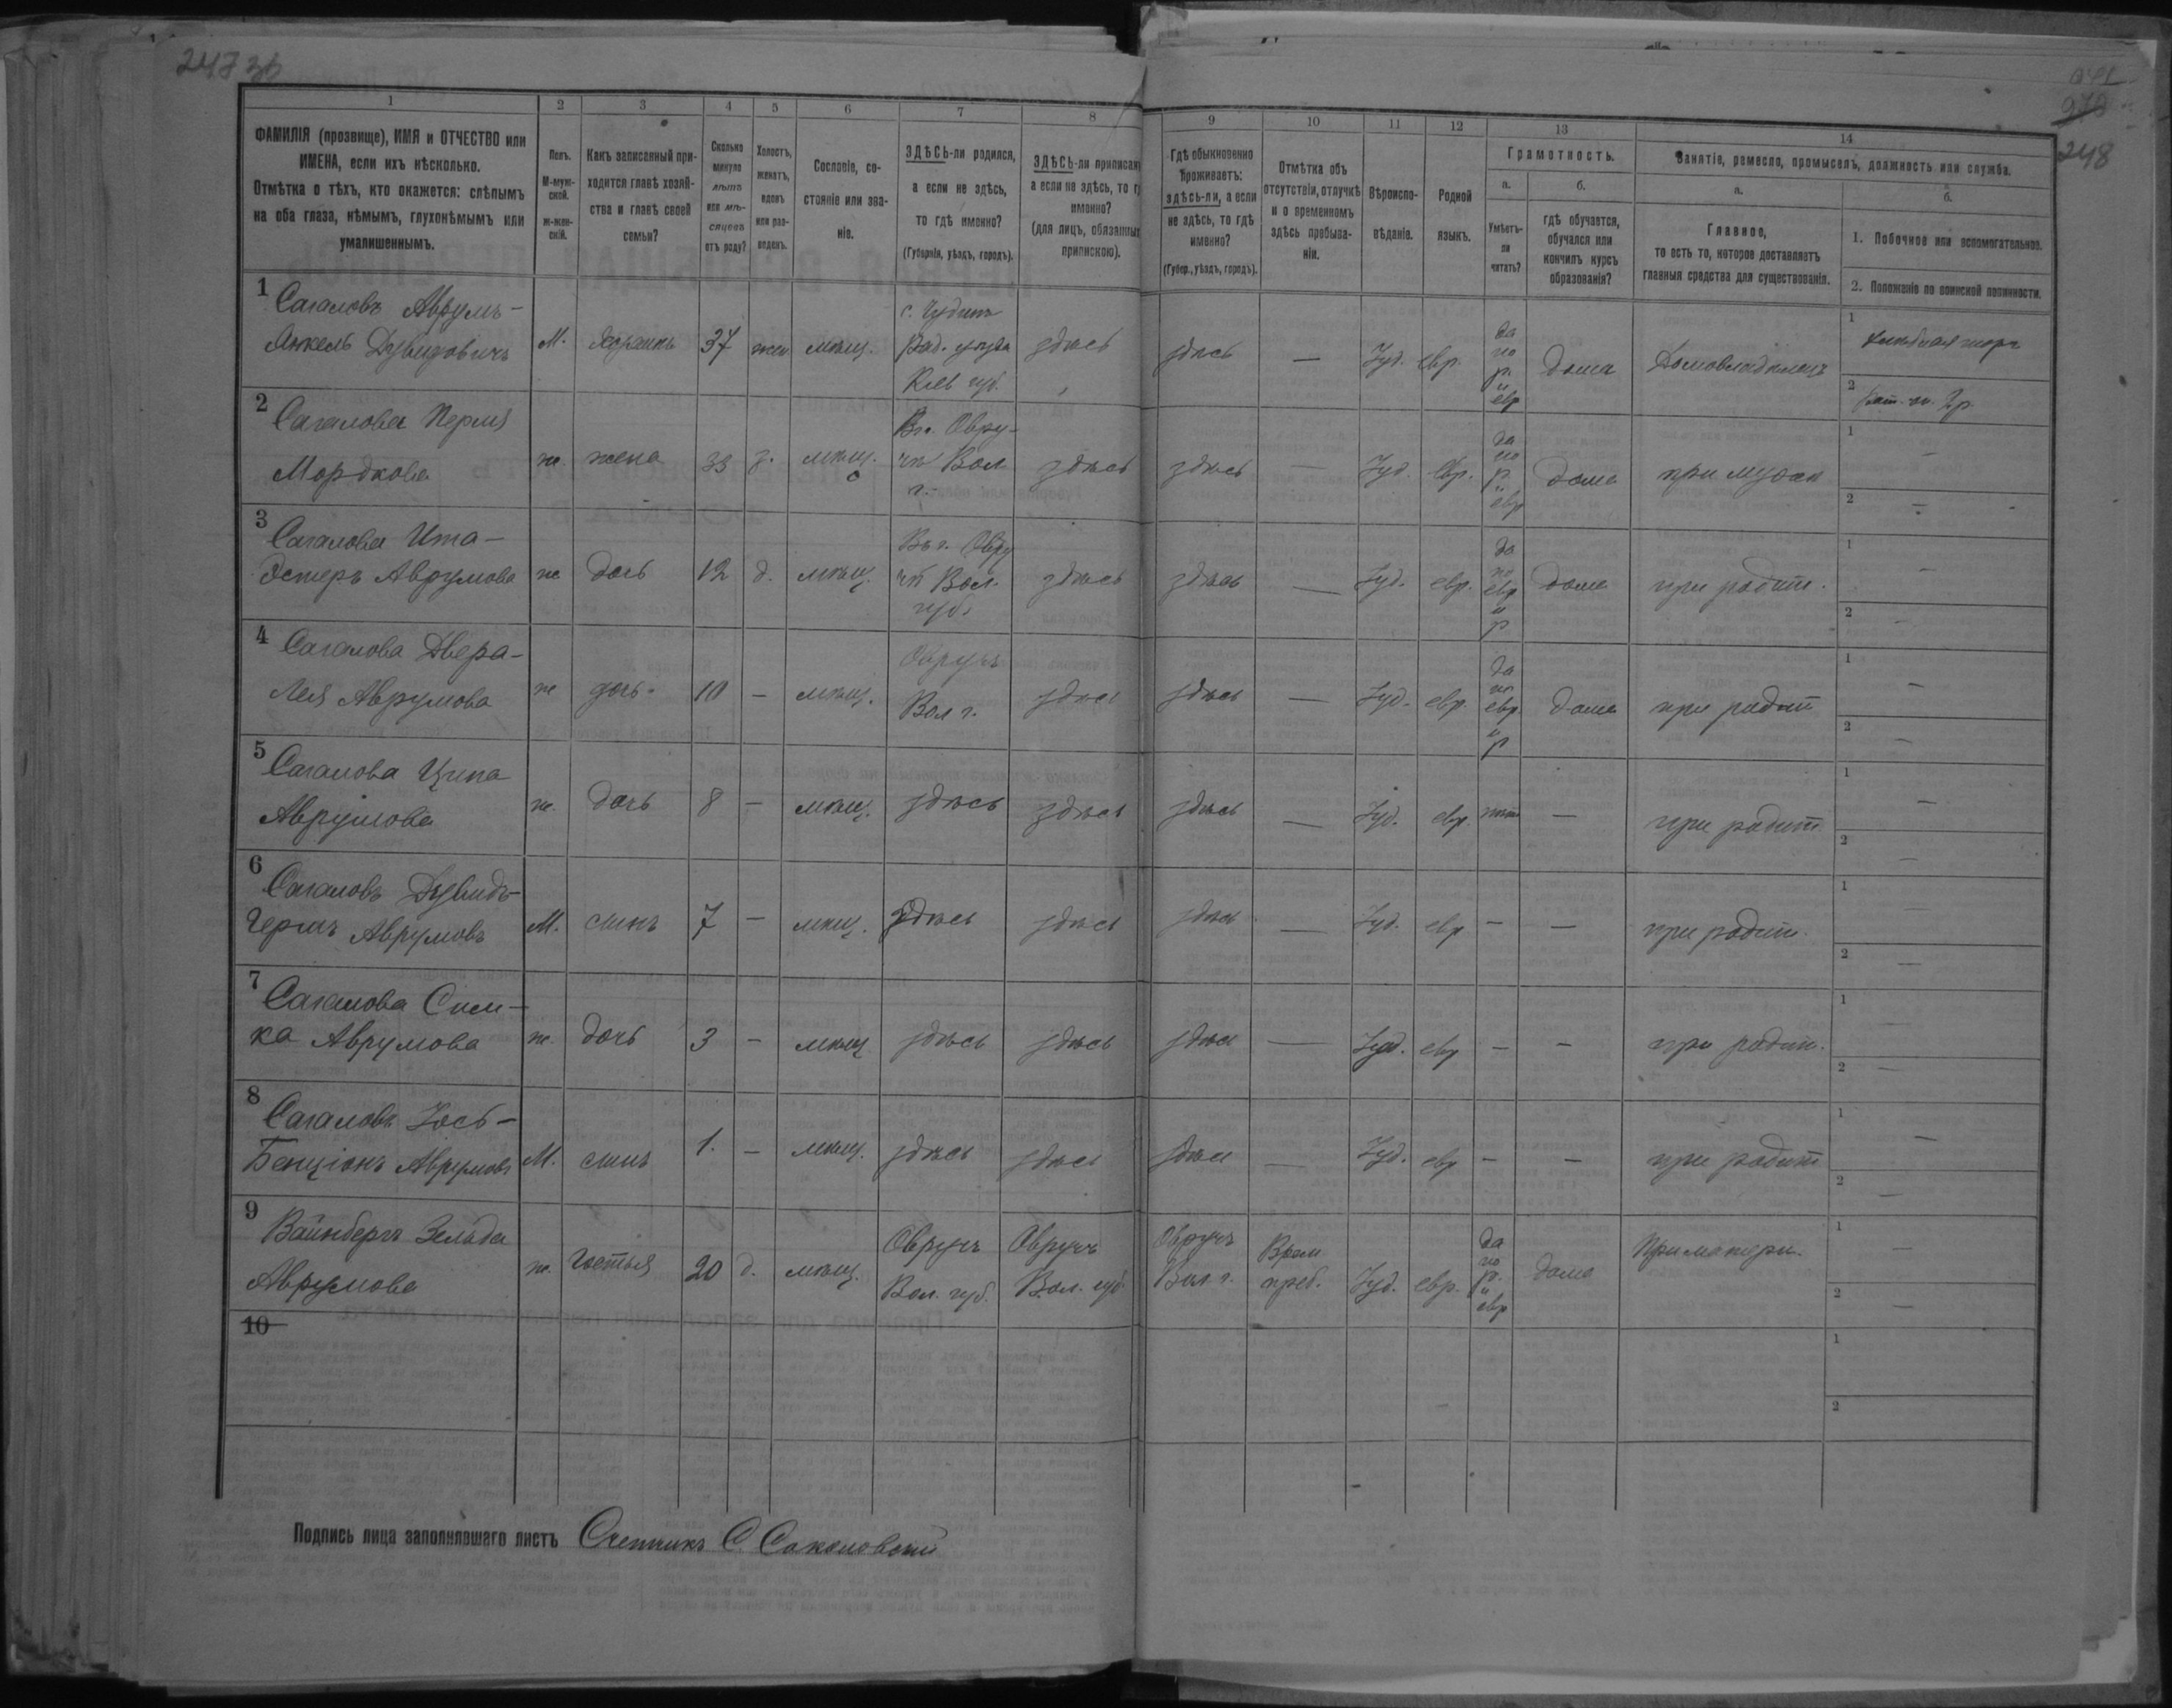 247 зв
248
1
2
3
4
5
6
7
8
9
10
11
12
13
14
ФАМИЛІЯ (прозвище), ИМЯ и ОТЧЕСТВО или
ИМЕНА, если ихъ нѣсколько.
Отмѣтка о тѣхъ, кто окажется: слѣпымъ
на оба глаза, нѣмымъ, глухонѣмымъ или
умалишеннымъ.
Полъ.
М-муж-
ской.
ж-жен-
скій.
Какъ записанный при-
ходится главѣ хозяй-
ства и главѣ своей
семьи?
Сколько
минуло
лѣтъ
или мѣ-
сяцевъ
отъ роду?
Холостъ,
женатъ,
вдовъ
или раз-
веденъ.
Сословіе, со-
стояніе или зва-
ніе.
ЗДѢСЬ-ли родился,
а если не здѣсь,
то гдѣ именно?
(Губернія, уѣздъ, городъ).
ЗДѢСЬ-ли приписанъ
а если не здѣсь, то г
именно?
(для лицъ, обязанных
припискою).
Гдѣ обыкновенно
проживаетъ:
здѣсь-ли, а если
не здѣсь, то гдѣ
именно?
(Губер., уѣздъ, городъ).
Отмѣтка объ
отсутствіи, отлучкѣ
и о временномъ
здѣсь пребыва-
ніи.
Вѣроиспо-
вѣданіе.
Родной
языкъ.
Грамотность.
а.
Умѣетъ-
ли
читать?
б.
гдѣ обучается,
обучался или
кончилъ курсъ
образованія?
Занятіе, ремесло, промыселъ, должность или служба.
а.
Главное,
то есть то, которое доставляетъ
главныя средства для существованія.
б.
1. Побочное или вспомогательное.
2. Положеніе по воинской повинности.
1 Сагаловъ Аврумъ-
Янкель Дувидовичъ
М. хозяинъ 37 жен мѣщ.
с. Чудинъ
Рад. уѣзда
Кіев губ.
здѣсь здѣсь — Іуд. евр.
да
по
р.
и
евр
дома Домовладѣлецъ
1
2
2 Сагалова Перля
Мордкова
ж. жена 33 з. мѣщ.
Вг. Овру-
чѣ Вол
г.
здѣсь здѣсь — Іуд. евр.
да
по
р.
и
евр
дома при мужѣ
1 —
2 —
3 Сагалова Ита-
Эстеръ Аврумова
ж дочь 12 д. мѣщ.
Въ г. Овру
чѣ Вол.
губ.
здѣсь здѣсь — Іуд. евр.
да
по
евр
и
р
дома при родит.
1 —
2 —
4 Сагалова Двера-
Лея Аврумова
ж дочь 10 — мѣщ.
Овручъ
Вол г.
здѣсь здѣсь — Іуд. евр.
да
по
евр.
и
р
дома при родит
1 —
2 —
5 Сагалова Ципа
Аврумова
ж. дочь 8 — мѣщ. здѣсь здѣсь здѣсь — Іуд. евр. нѣт — при родит.
1 —
2 —
6 Сагаловъ Дувидъ-
Гершъ Аврумовъ
М. сынъ 7 — мѣщ. здѣсь здѣсь здѣсь — Іуд. евр — — при родит.
1 —
2 —
7 Сагалова Сим-
ка Аврумова
ж. дочь 3 — мѣщ здѣсь здѣсь здѣсь — Іуд. евр — — при родит.
1 —
2 —
8 Сагаловъ Іось-
Бенціонъ Аврумовъ
М. сынъ 1. — мѣщ. здѣсь здѣсь здѣсь — Іуд. евр — — при родит
1 —
2 —
9 Вайнбергъ Зельда
Аврумова
ж. гостья 20 д. мѣщ.
Овручъ
Вол. губ.
Овручъ
Вол. губ.
Овручъ
Вол г.
Врем
преб.
Іуд. евр.
да
по
р.
и
евр
дома При матери.
1 —
2 —
10
1
2
Подпись лица заполнявшаго листъ Счетчикъ С Соколовскій